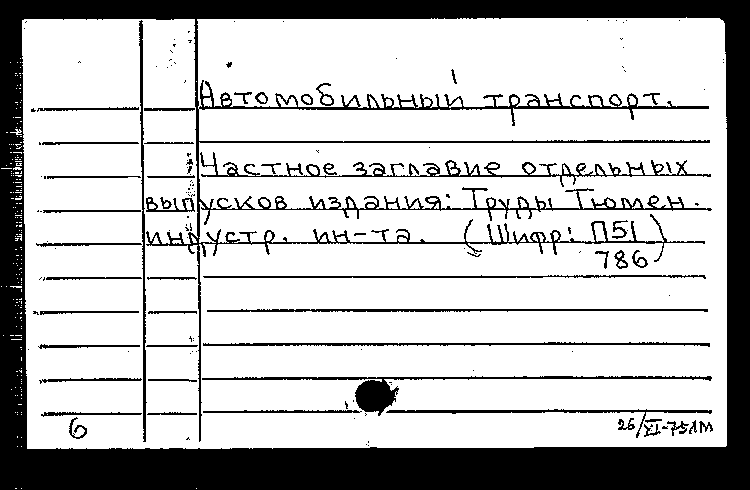 Автомобильный транспорт.
Частное заглавие отдельных
выпусков издания: Труды Тюмен.
индустр. ин-та. (Шифр: П51
786)
6